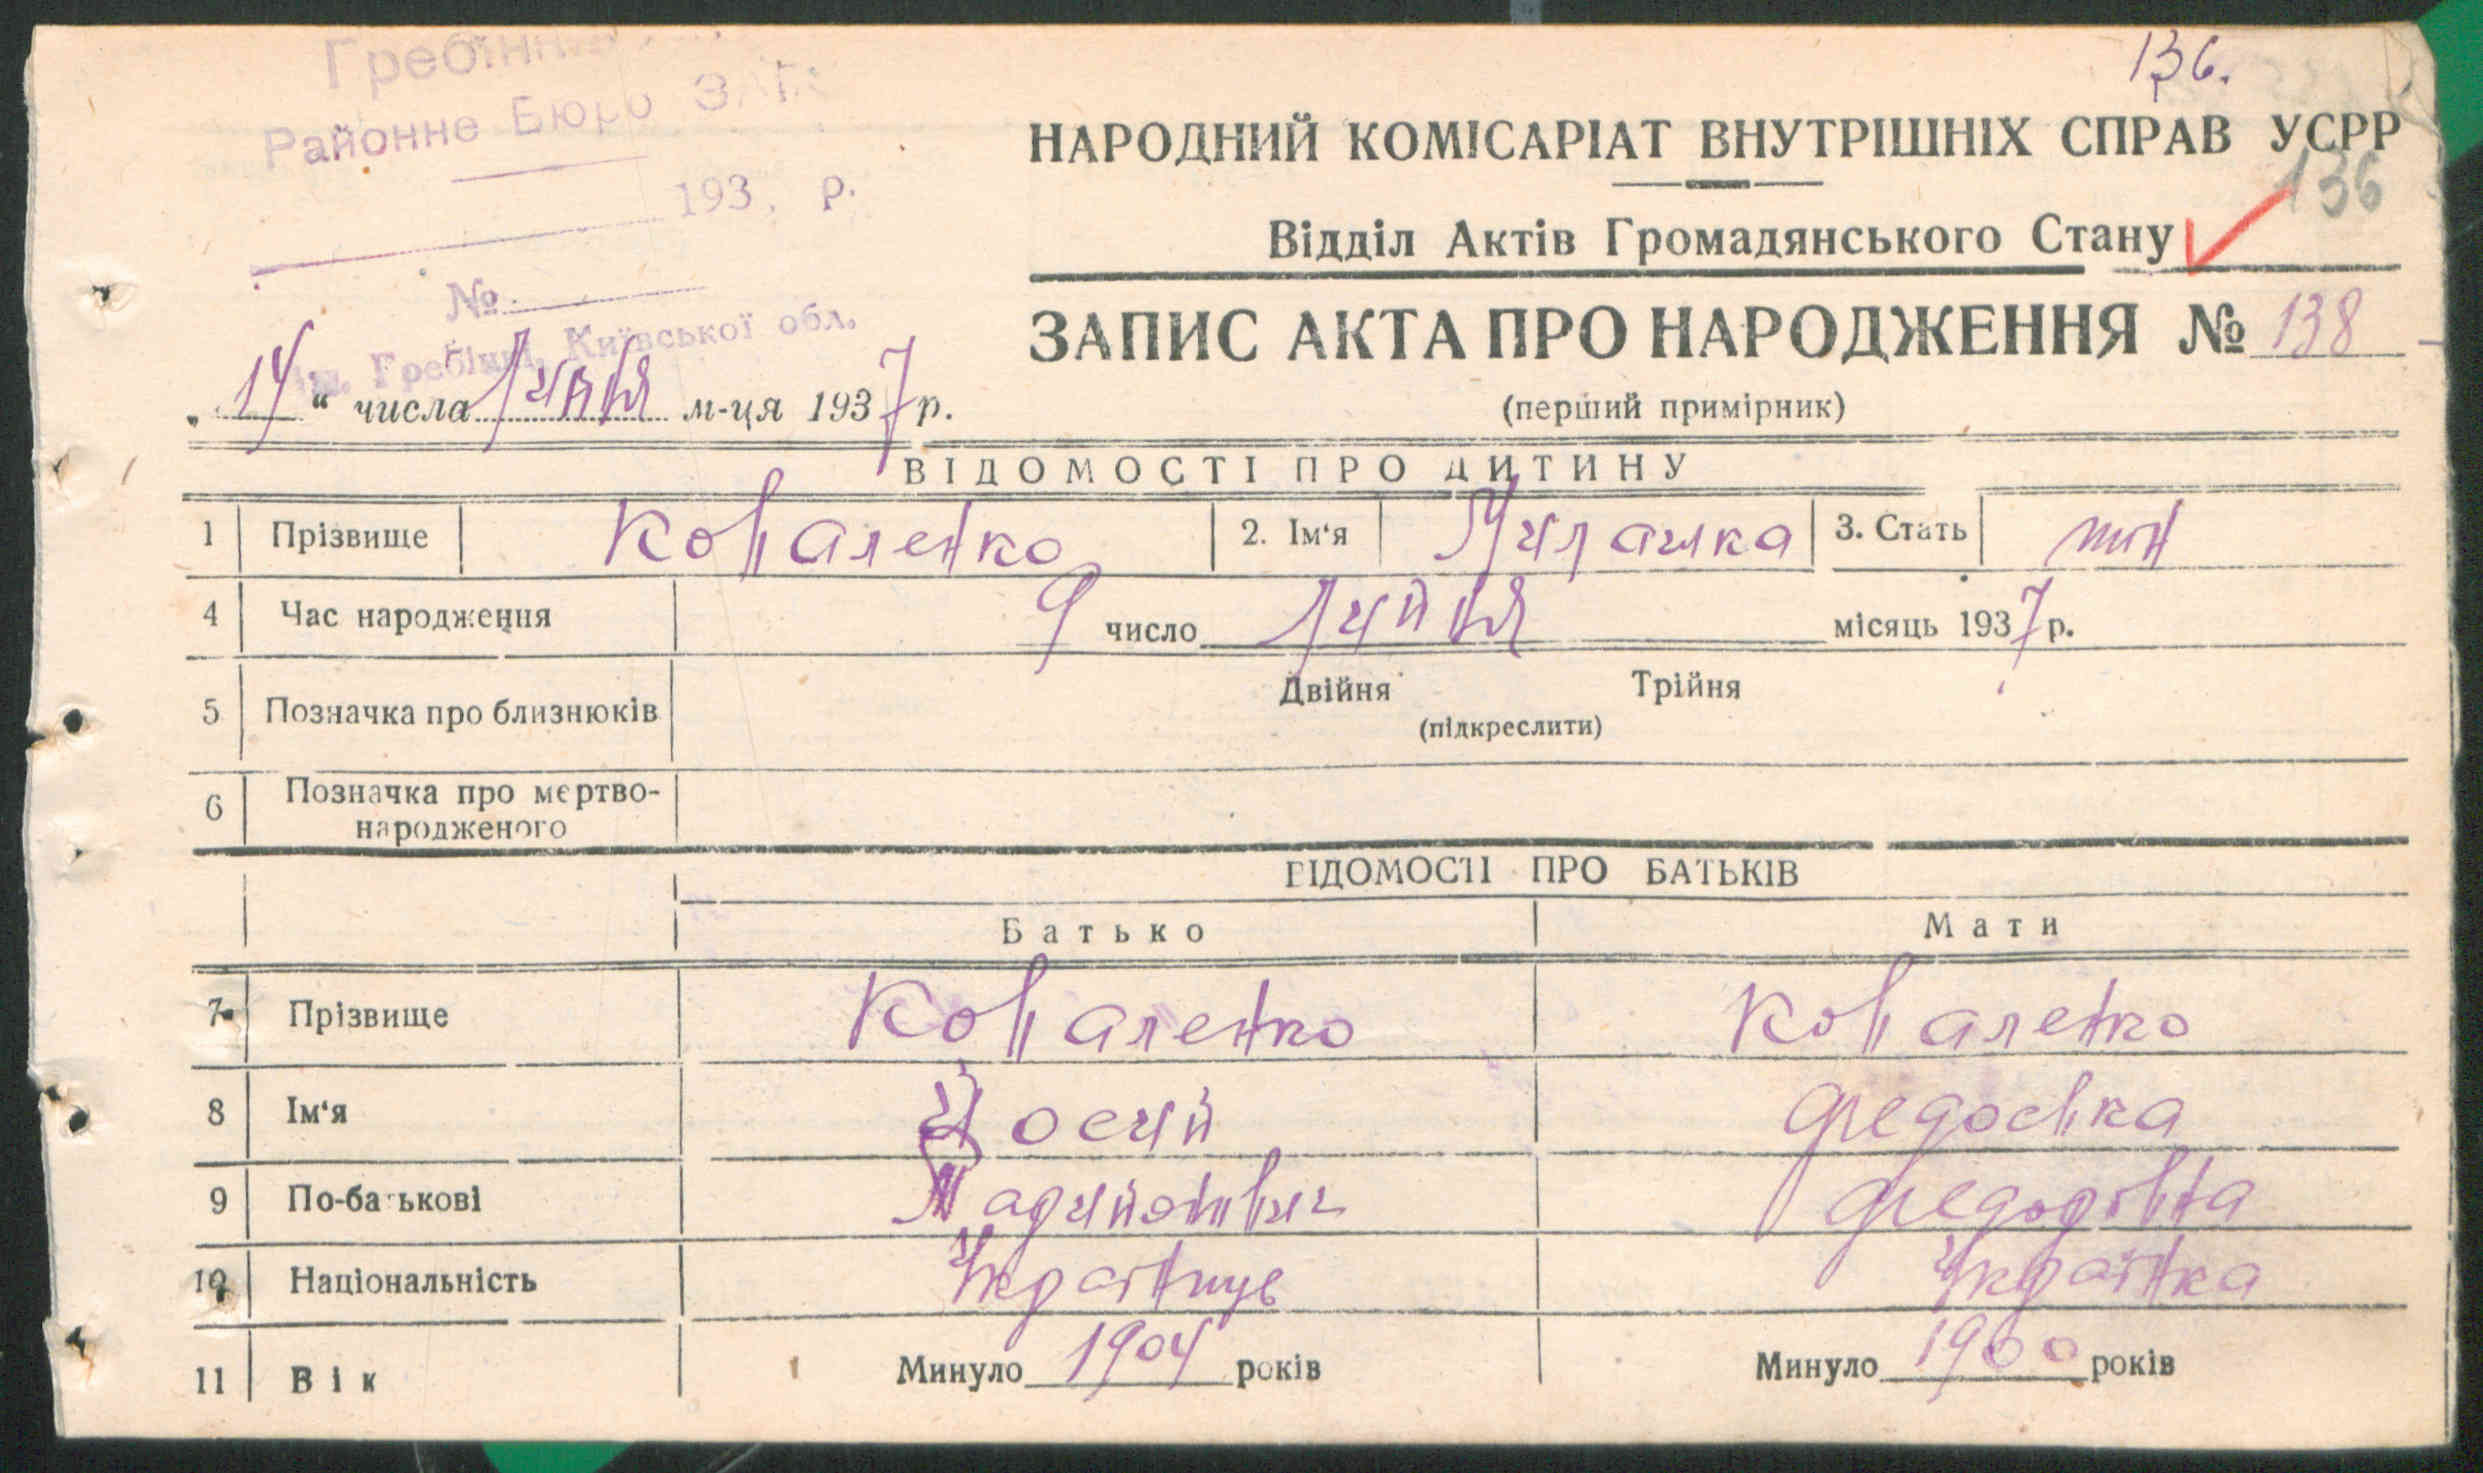 136.
Районне Бюро ЗАГС
193 р.
№
НАРОДНИЙ КОМІСАРІАТ ВНУТРІШНІХ СПРАВ УСРР
136
Відділ Актів Громадянського Стану
ЗАПИС АКТА ПРО НАРОДЖЕННЯ № 138
(перший примірник)
Гребінки, Київської обл.
„14“ числа Липня м-ця 1937 р.
ВІДОМОСТІ ПРО ДИТИНУ
1 Прізвище Коваленко 2. Ім'я 3. Стать жін
4 Час народження 9 число Липня місяць 1937 р.
5 Позначка про близнюків Двійня Трійня
(підкреслити)
6 Позначка про мертво-
народженого
ВІДОМОСТІ ПРО БАТЬКІВ
Батько Мати
7 Прізвище Коваленко Коваленко
8 Ім'я Йосип Федоська
9 По-батькові Федорівна
10 Національність Українць Українка
11 Вік Минуло 1904 років Минуло 1900 років